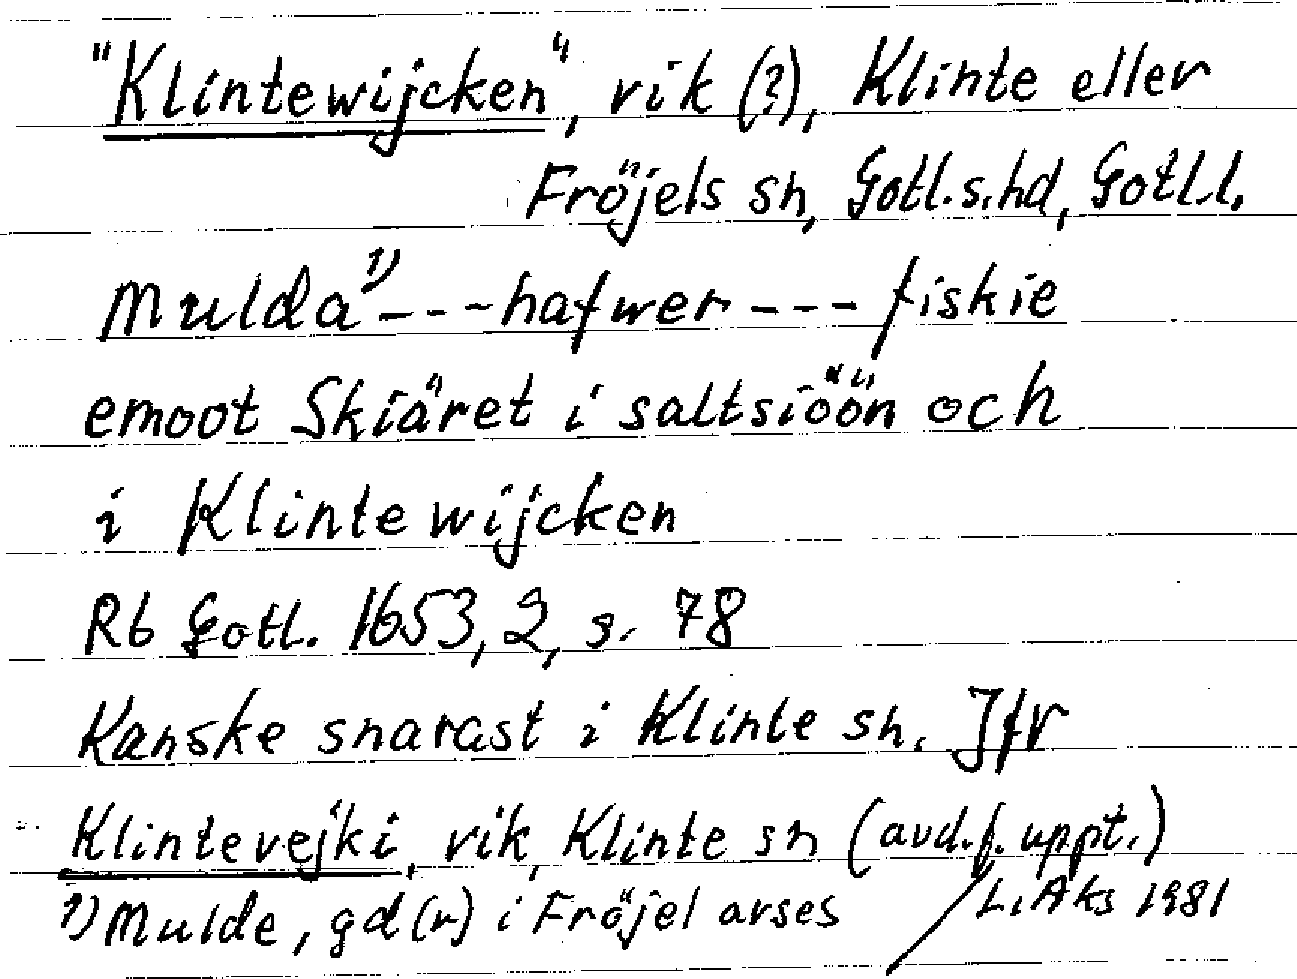 "Klintewijcken", vik (?), Klinte eller
Fröjels sn, Gotl.s.hd, Gotl.l.
Mulda 1) --- hafwer --- fiskie
emoot Skiäret i saltsiöön och
i Klintewijcken
Rb Gotl. 1653, 2, s. 78
Kanske snarast i Klinte sn. Jfr
Klintevejki, vik, Klinte sn (avd.f.uppt.)
1) Mulde, gd(r) i Fröjel avses
L. Aks 1981